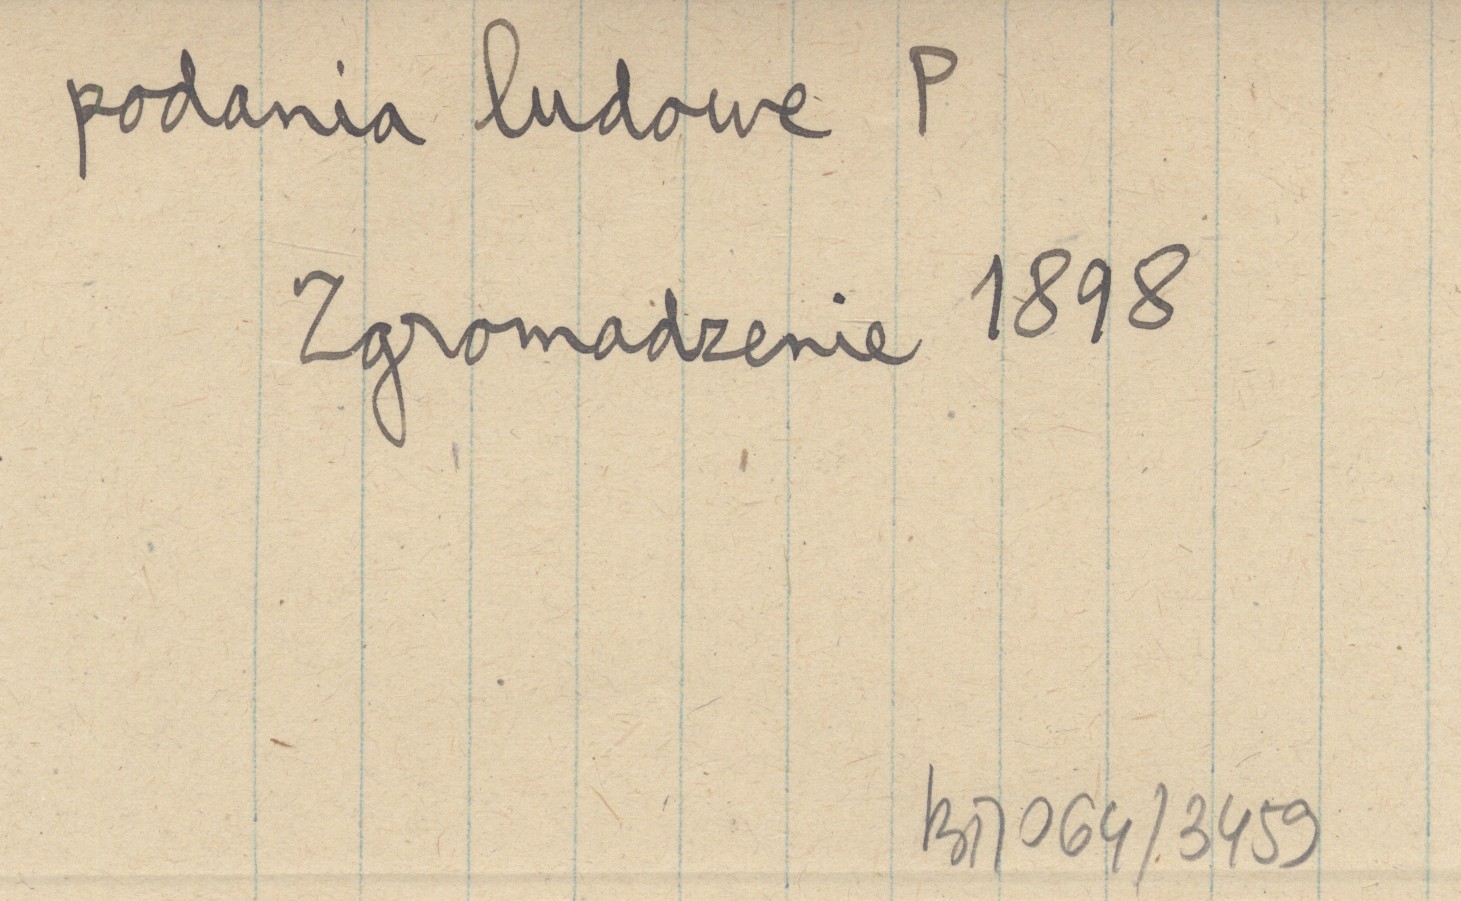 podania ludowe P
Zgromadzenie 1898
064/3459